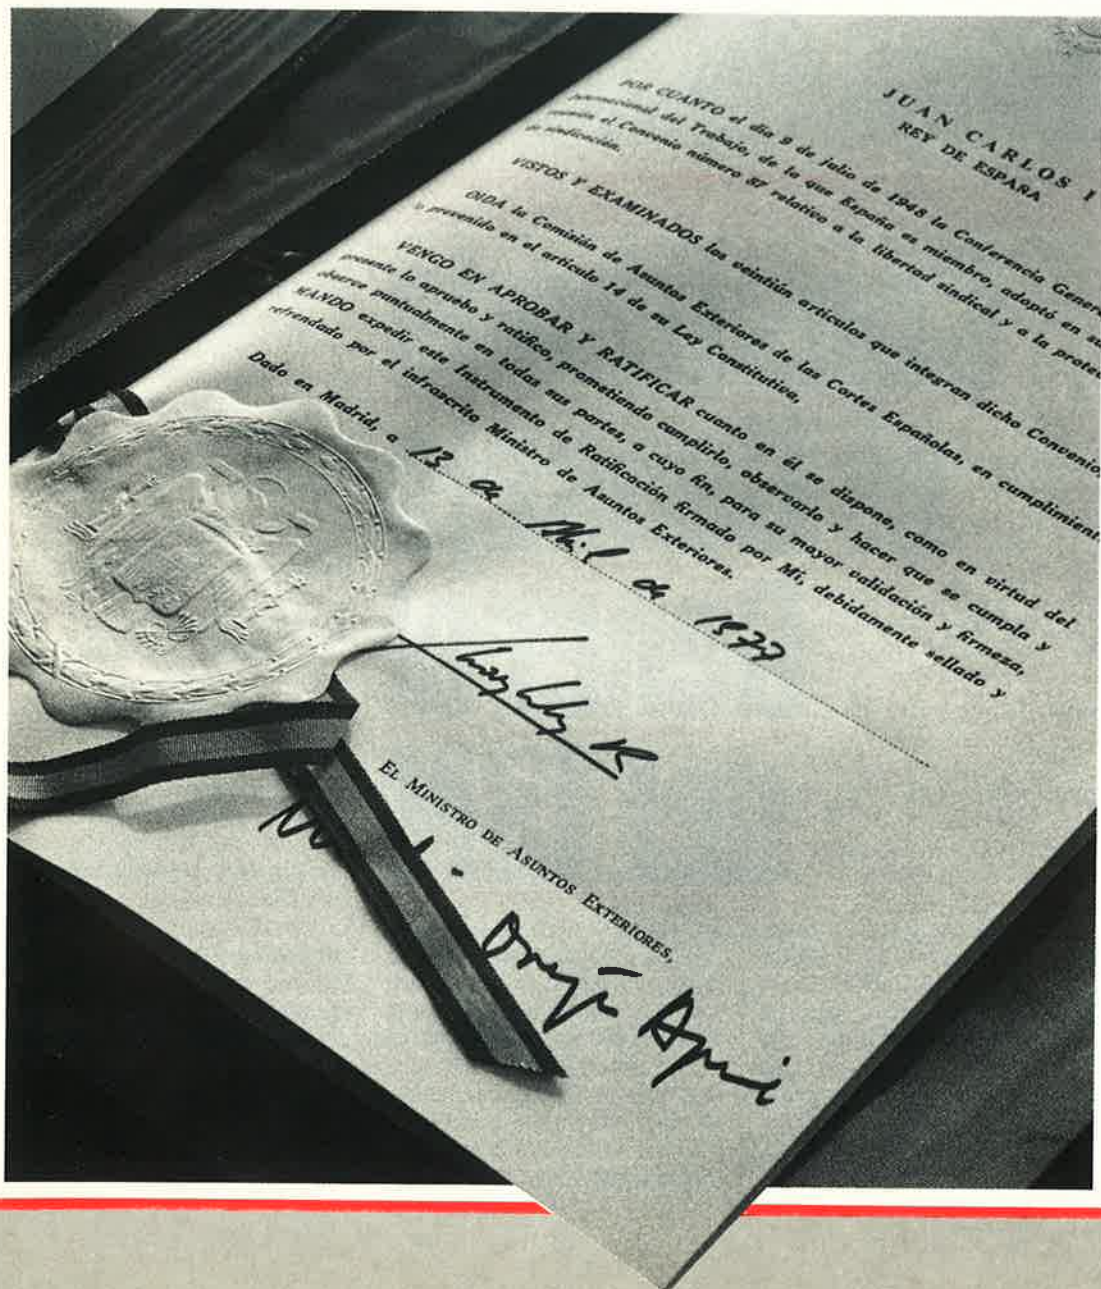 JUAN CARLOS I
REY DE ESPAÑA
POR CUANTO el día 9 de julio de 1948 la Conferencia General
Internacional del Trabajo, de la que España es miembro, adoptó en su
reunión el Convenio número 87 relativo a la libertad sindical y a la protec
de sindicación.
VISTOS Y EXAMINADOS los veintiún artículos que integran dicho Convenio,
OIDA la Comisión de Asuntos Exteriores de las Cortes Españolas, en cumplimient
lo prevenido en el artículo 14 de su Ley Constitutiva,
VENGO EN APROBAR Y RATIFICAR cuanto en él se dispone, como en virtud del
presente lo apruebo y ratifico, prometiendo cumplirlo, observarlo y hacer que se cumpla y
observe puntualmente en todas sus partes, a cuyo fin, para su mayor validación y firmeza,
MANDO expedir este Instrumento de Ratificación firmado por Mí, debidamente sellado y
refrendado por el infrascrito Ministro de Asuntos Exteriores.
Dado en Madrid, a 13 de Abril de 1977
EL MINISTRO DE ASUNTOS EXTERIORES,